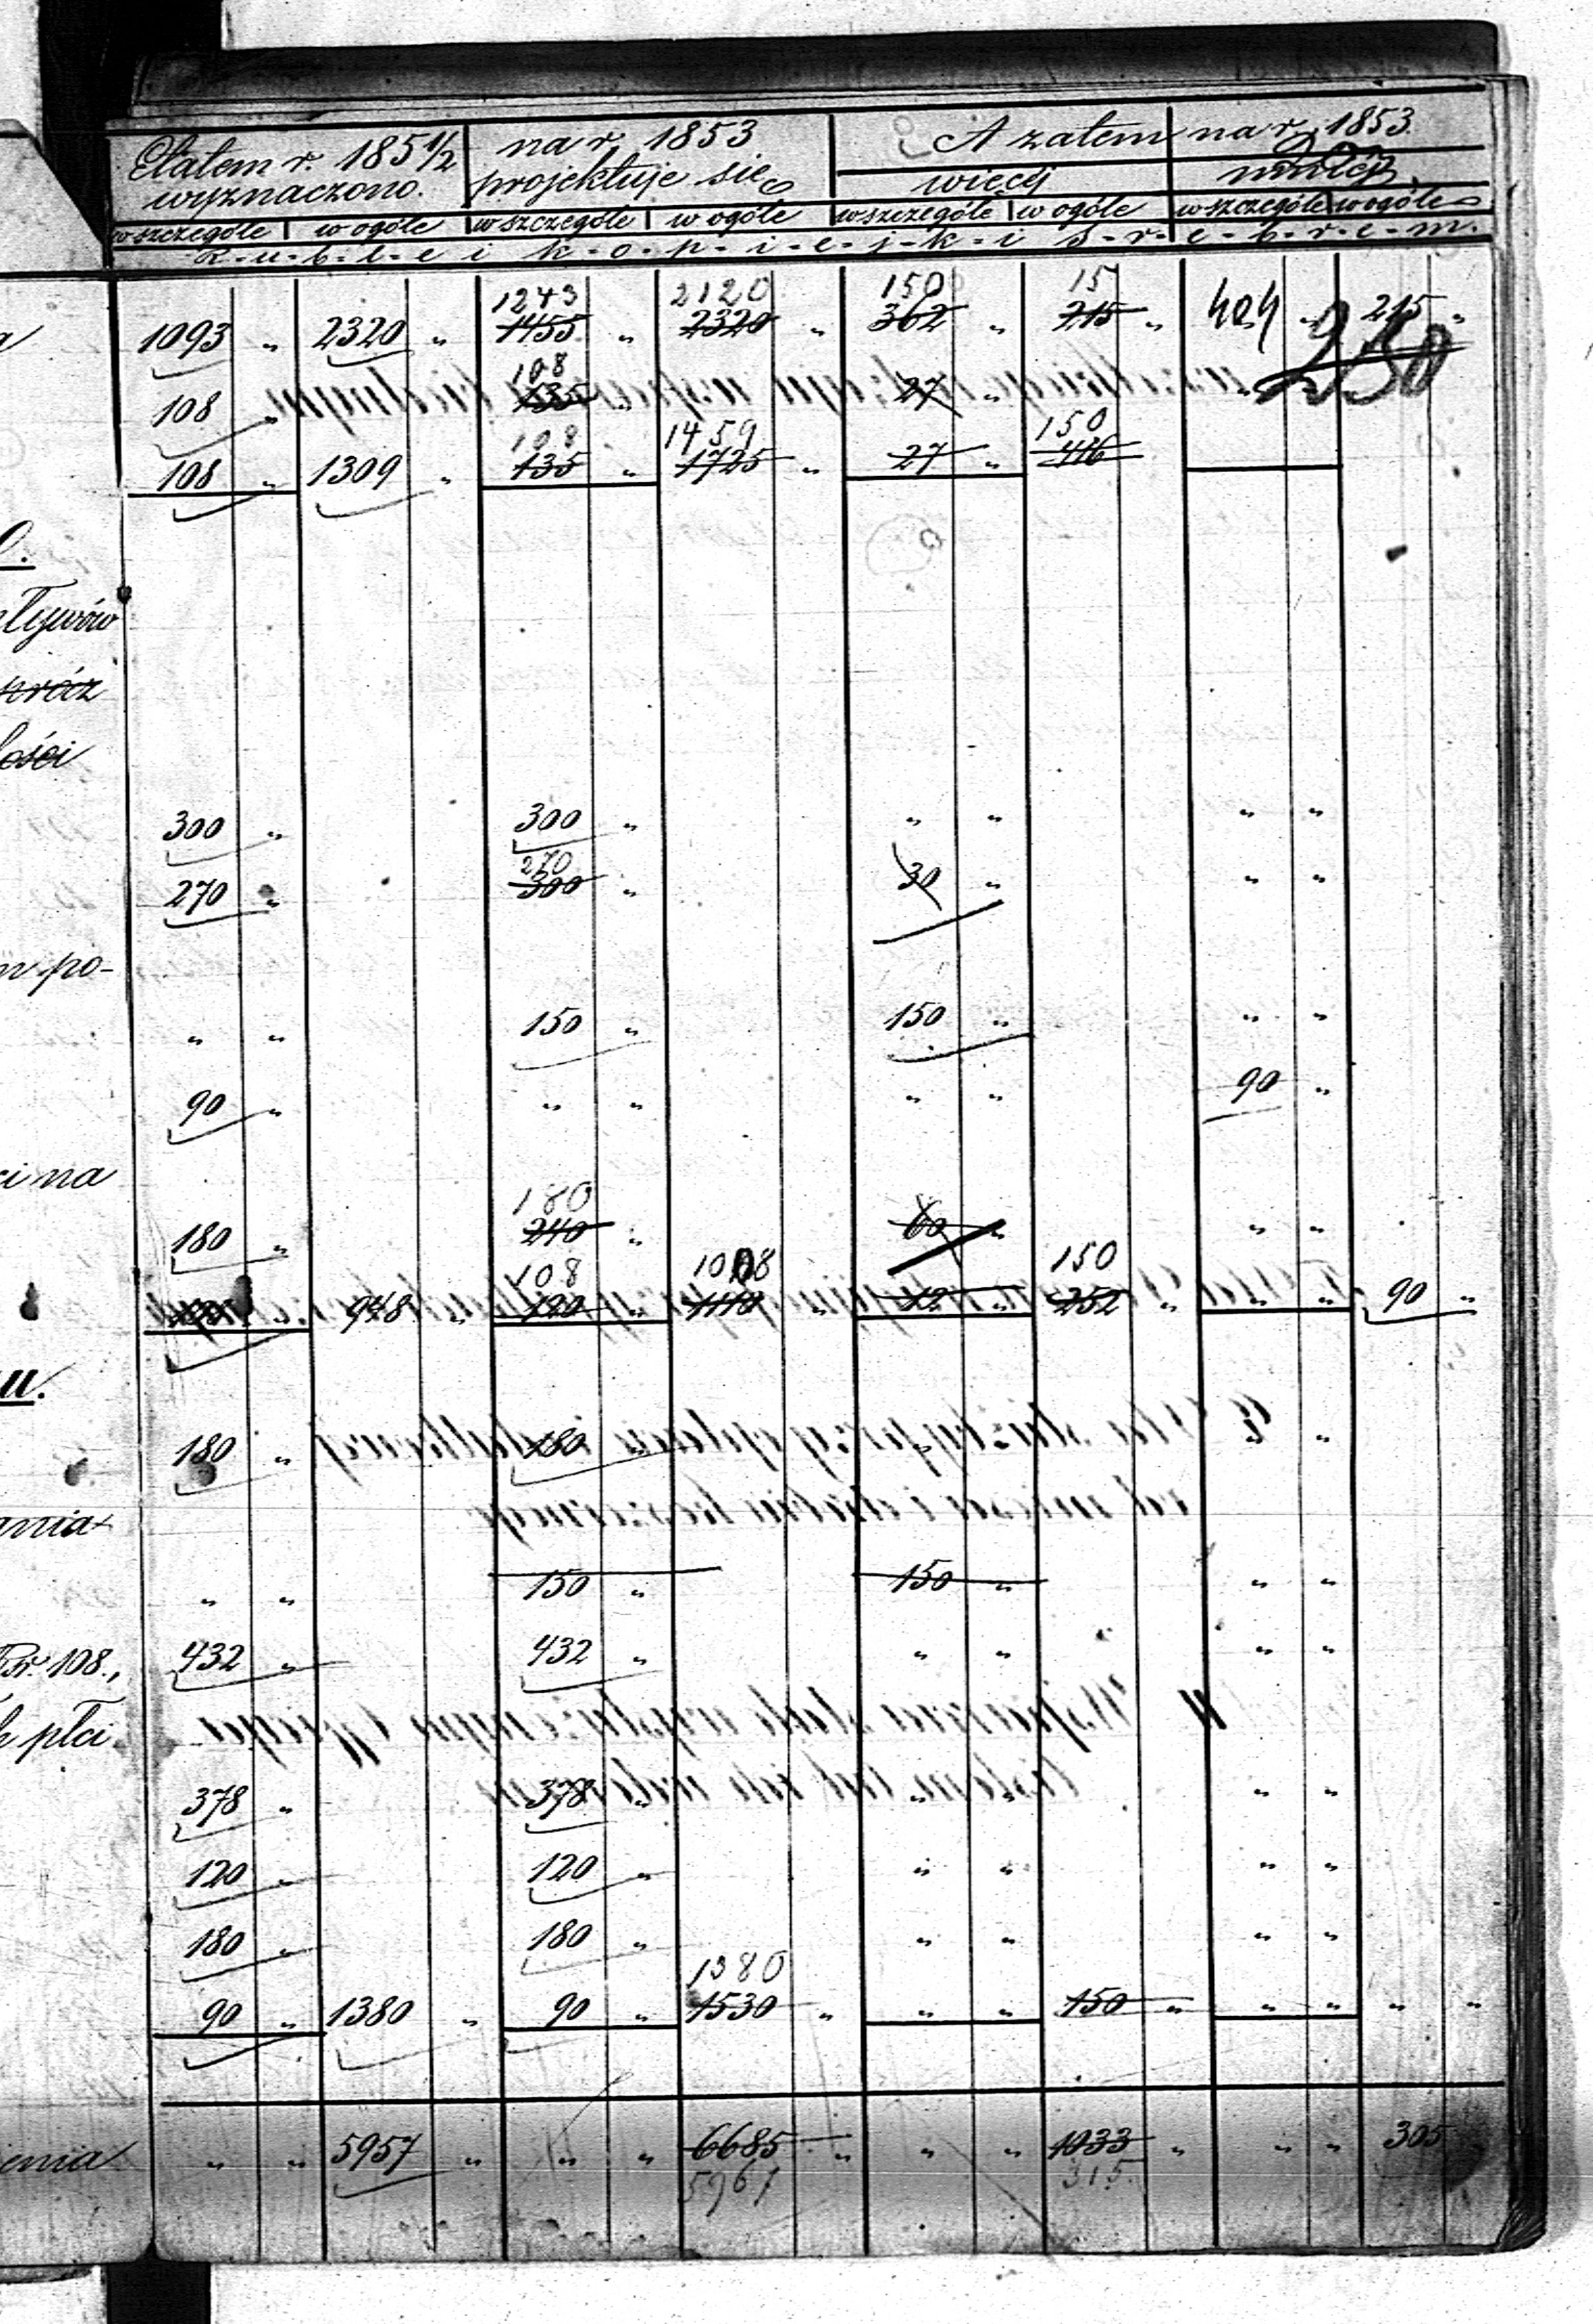 Etatem r. 185½ na r. 1853 A zatem na r. 1853
wyznaczono. projektuje się więcej mniej
w szczególe w ogóle w szczególe w ogóle w szczególe w ogóle w szczególe w ogóle
R-u-b-l-e i k-o-p-i-e-j-k-i s-r-e-b-r-e-m.
1243 2120 150 15
1093 „ 2320 „ 1455 „ 2320 „ 362 „ 215 „ 404 „ 215 „
250
108
108 „ 135 „ 27 „
108 1459 150
108 „ 1309 „ 135 „ 1725 „ 27 „ 416
300 „ 300 „ „ „ „ „
270
270 „ 300 „ 30 „ „ „
n po-
„ „ 150 „ 150 „ „ „
90 „ „ „ „ „ 90 „
ci na
180
180 „ 240 „ 60 „ „ „
108 1008 150
108 „ 948 „ 120 „ 1110 „ 12 „ 252 „ „ „ 90 „
180 „ 180 „ „ „ „
ania
„ „ 150 „ 150 „ „ „
108., 432 „ 432 „ „ „ „ „
płci
378 „ 378 „ „ „ „ „
120 „ 120 „ „ „ „ „
180 „ 180 „ „ „ „ „
1380
90 „ 1380 „ 90 „ 1530 „ „ „ 150 „ „ „ „ „
enia „ „ 5957 „ „ „ 6685 „ „ „ 1033 „ „ „ 305
5967 315.